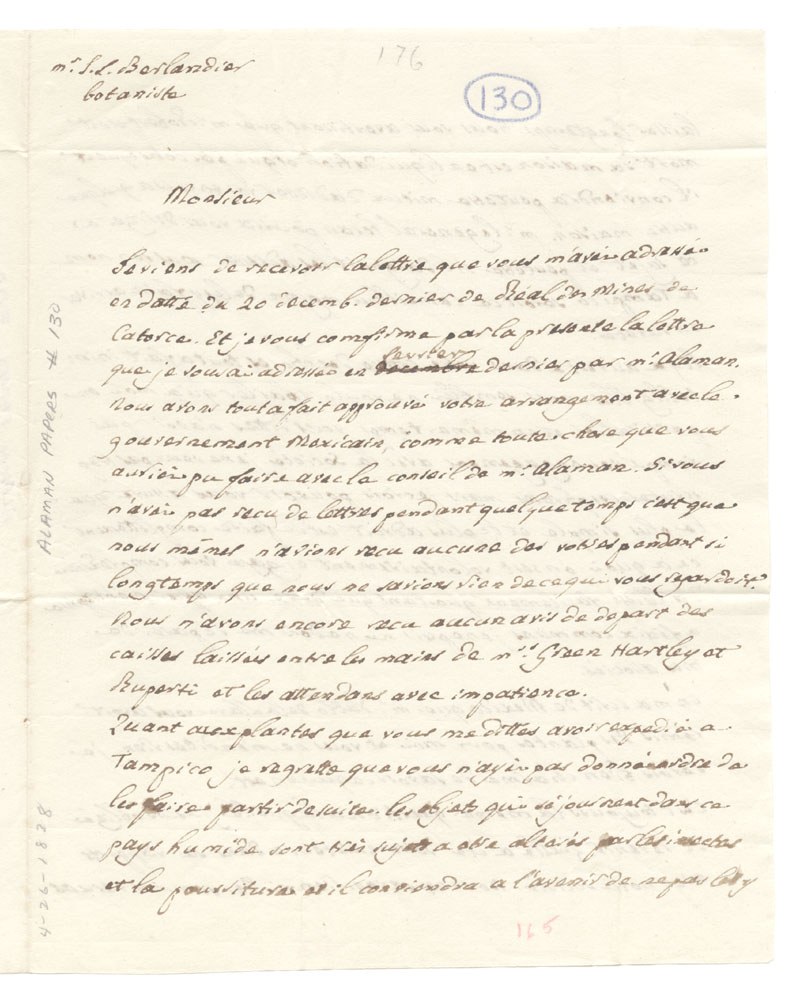 176
130
mr. J. L. Berlandier
botaniste
Monsieur
Je viens de recevoir la lettre que vous m'avéz adressée
en datte du 20 decemb. dernier de Réal des Mines de
Catorce. Et je vous comfirme par la presente la lettre
que je vous ai adressée en decembre fevrier dernier par mr. Alaman.
Nous avons tout a fait approuvé votre arrangement avec le
gouvernement Mexicain, comme toute chose que vous
auriéz pu faire avec le conseil de mr. Alaman. Si vous
n'avéz pas recu de lettres pendant quelque temps c'est que
nous mêmes n'avions recu aucune des votres pendant si
longtemps que nous ne savions rien de ce qui vous regardoit.
Nous n'avons encore recu aucun avis de depart des
caisses laissées entre les mains de mr. Green Hartley et
Ruperti et les attendans avec impatience.
Quant aux plantes que vous me dittes avoir expedié a
Tampico je regrette que vous n'ayéz pas donné ordre de
les faire partir de suite. les objets qui séjournent dans ce
pays humide sont très sujets a etre alterés par les insectes
et la pourriture et il conviendra a l'avenir de ne pas les y
165
ALAMAN PAPERS # 130
4-26-1828